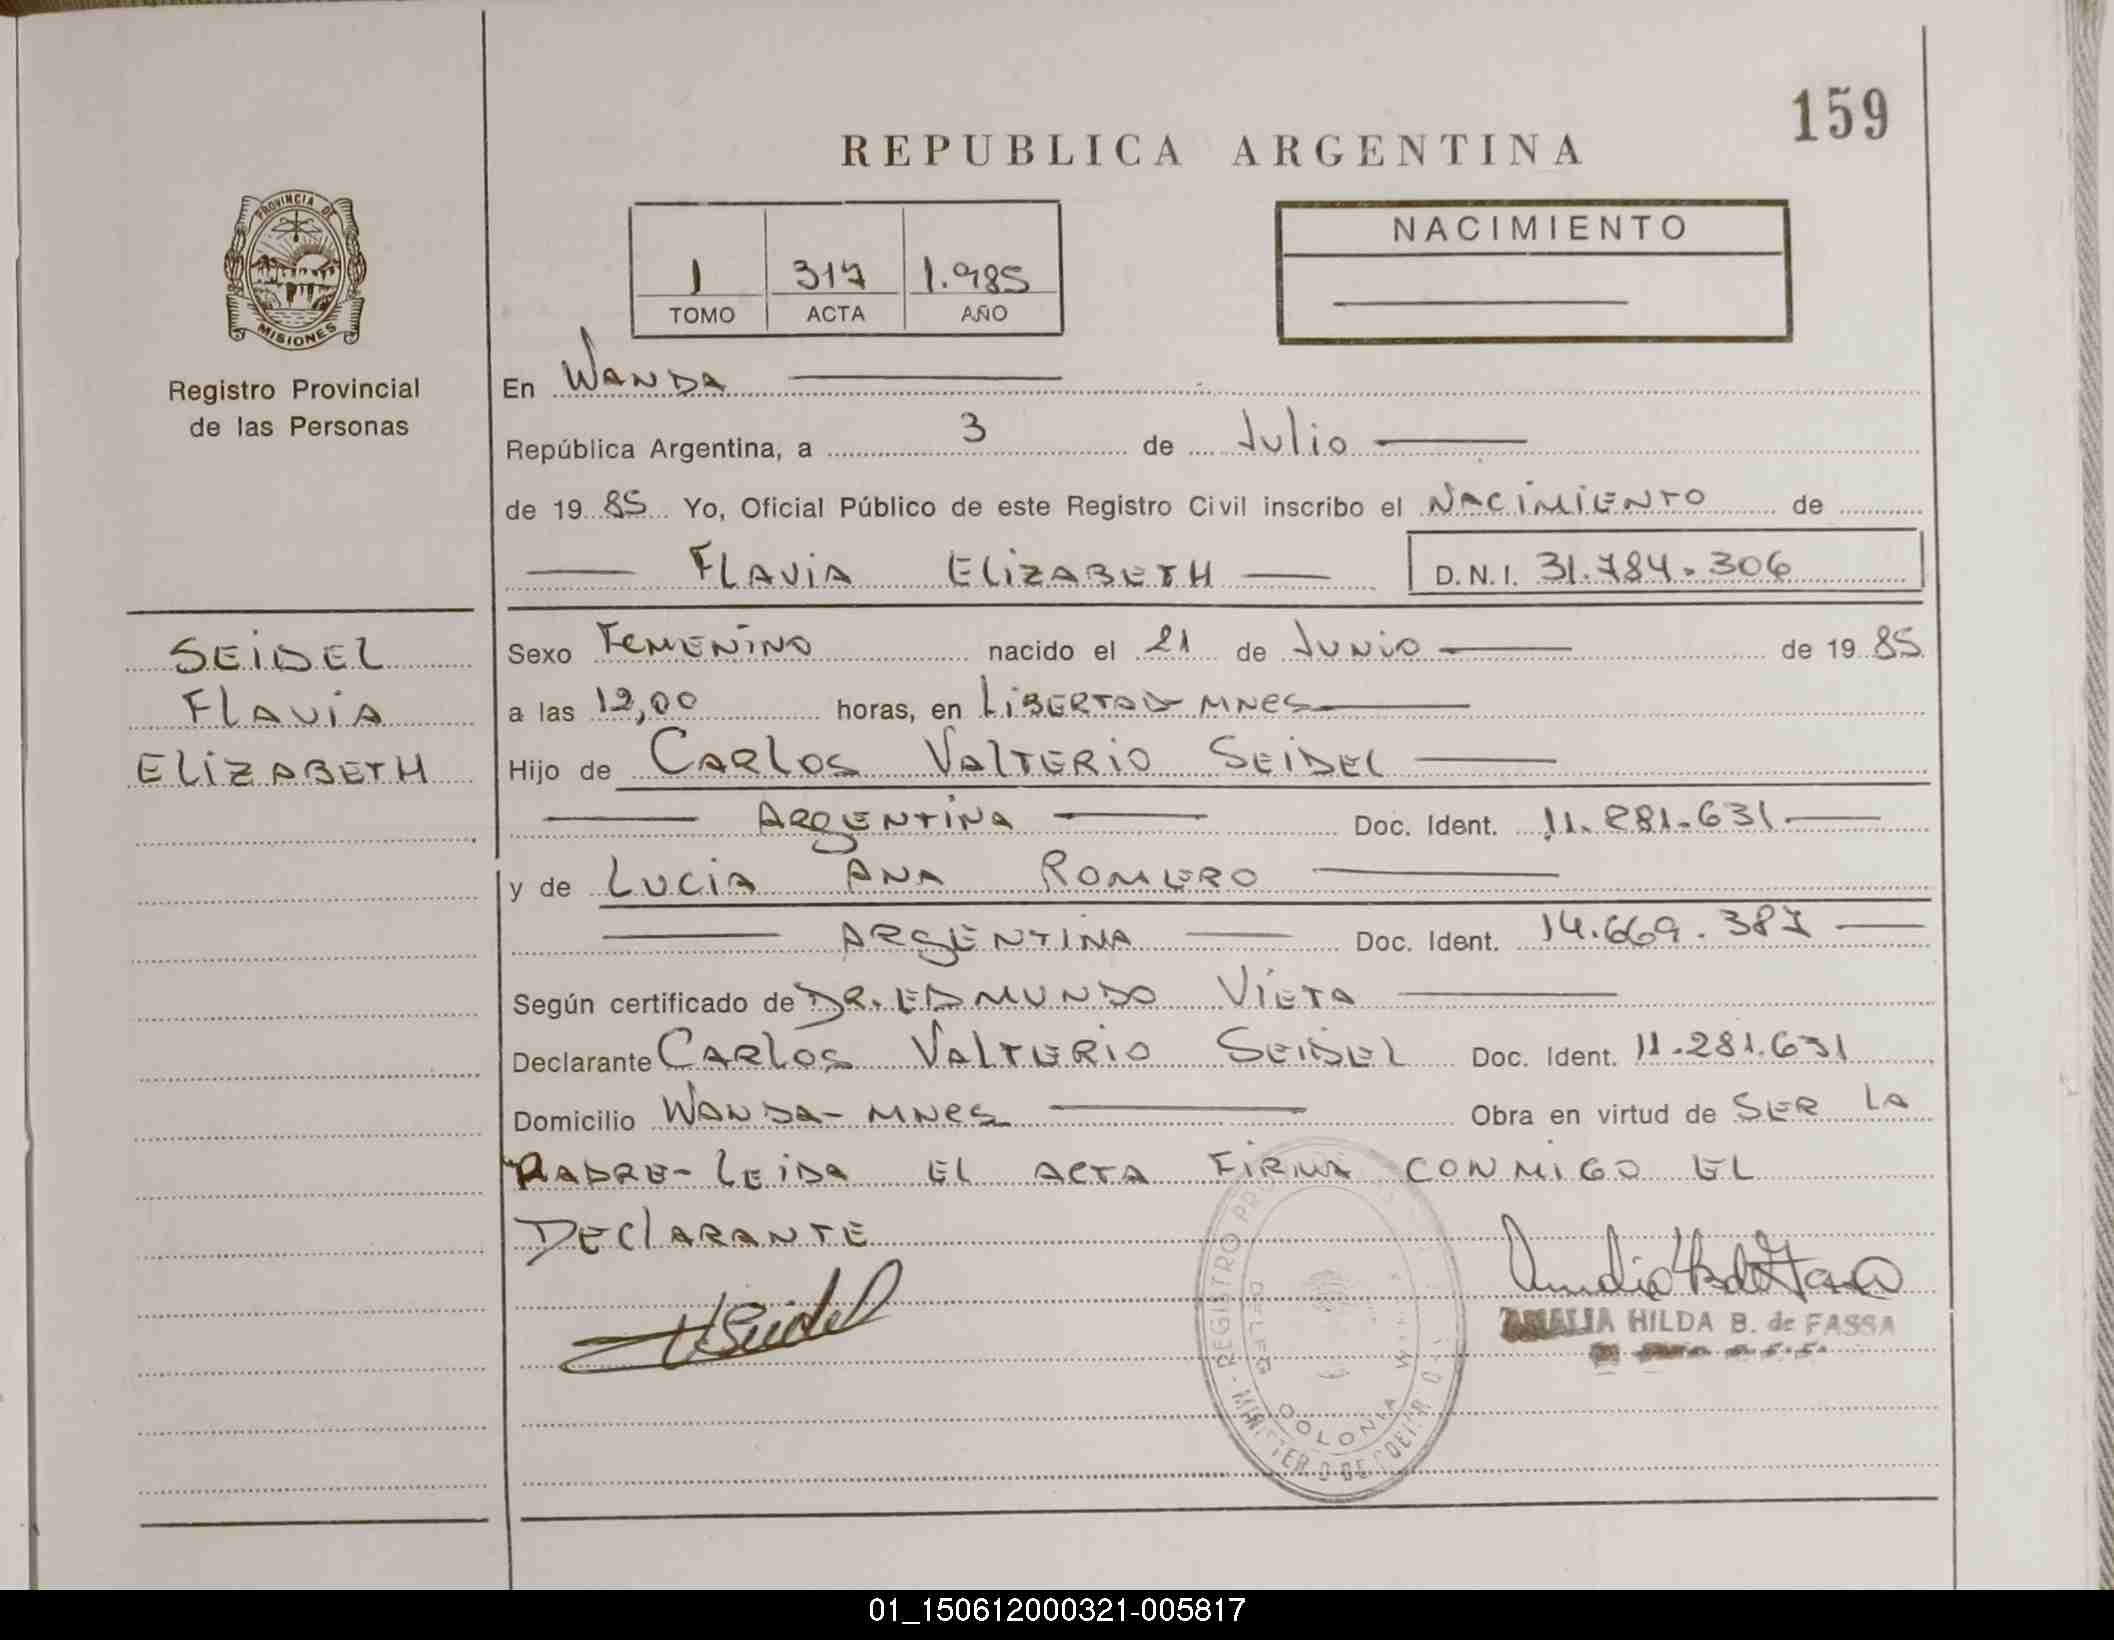 159
REPUBLICA ARGENTINA
PROVINCIA DE
MISIONES
Registro Provincial
de las Personas
1 317 1.985
TOMO ACTA AÑO
NACIMIENTO
En WANDA
República Argentina, a 3 de Julio
de 19 85 Yo, Oficial Público de este Registro Civil inscribo el NACIMIENTO de
FLAVIA ELIZABETH D.N.I. 31.784.306
SEIDEL
FLAVIA
ELIZABETH
Sexo FEMENINO nacido el 21 de JUNIO de 19 85
a las 12,00 horas, en LIBERTAD-MNES
Hijo de CARLOS VALTERIO SEIDEL
ARGENTINA Doc. Ident. 11.281.631
y de LUCIA ANA ROMERO
ARGENTINA Doc. Ident. 14.669.387
Según certificado de DR. EDMUNDO VIETA
Declarante CARLOS VALTERIO SEIDEL Doc. Ident. 11.281.631
Domicilio WANDA-MNES Obra en virtud de SER LA
PADRE-LEIDA EL ACTA FIRMA CONMIGO EL
DECLARANTE
Seidel
AMALIA HILDA B. de FASSA
REGISTRO
COLONIA
01_150612000321-005817